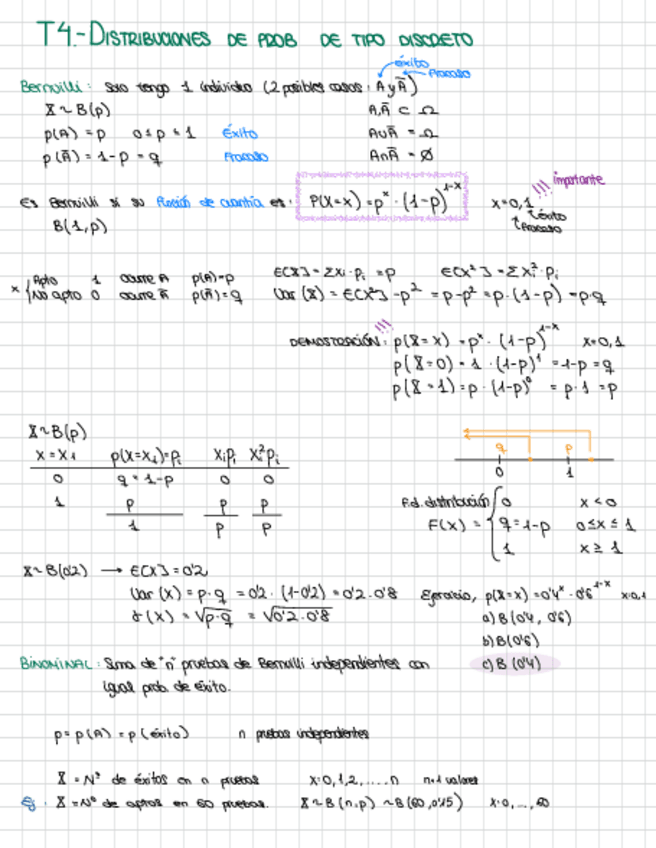 T4.- DISTRIBUCIONES DE PROB DE TIPO DISCRETO
éxito
Fracaso
Bernuilli: Solo tengo 1 individuo (2 posibles casos: A y Ā)
X ~ B(p)
A,Ā ⊂ Ω
p(A) = p 0 ≤ p ≤ 1 Éxito
A∪Ā = Ω
p(Ā) = 1-p = q Fracaso
A∩Ā = Ø
importante
!!!
Es Bernuilli si su función de cuantía es: P(X=x) = pˣ · (1-p)¹⁻ˣ x=0,1
B(1,p)
éxito
Fracaso
x Apto 1 ocurre A p(A)=p
No apto 0 ocurre Ā p(Ā)=q
E[X] = Σxi·pᵢ = p E[x²] = Σxᵢ²·pᵢ
Var(X) = E[X²] - p² = p-p² = p·(1-p) = p·q
!!!
DEMOSTRACIÓN: p(X=x) = pˣ · (1-p)¹⁻ˣ x=0,1
p(X=0) = 1 · (1-p)¹ = 1-p = q
p(X=1) = p · (1-p)⁰ = p·1 = p
X~B(p)
x=x₁ p(x=x₁)=pᵢ xᵢpᵢ xᵢ²pᵢ
0 q=1-p 0 0
1 p p p
1 p p
q p
0 1
F.d. distribución
F(x) = { 0 x<0
q=1-p 0≤x≤1
1 x≥1
X~B(0'2) → E[X] = 0'2
Var(X) = p·q = 0'2 · (1-0'2) = 0'2·0'8
σ(X) = √p·q = √0'2·0'8
Ejercicio, p(X=x) = 0'4ˣ · 0'6¹⁻ˣ x=0,1
a) B(0'4, 0'6)
b) B(0'6)
c) B(0'4)
BINOMINAL: Suma de "n" pruebas de Bernuilli independientes con
igual prob. de éxito.
p = p(A) = p(éxito) n pruebas independientes
X = Nº de éxitos en n pruebas x=0,1,2,.....n n+1 valores
Ej. X = Nº de aptos en 60 pruebas. X~B(n,p) ~B(60,0'15) x=0,...,60